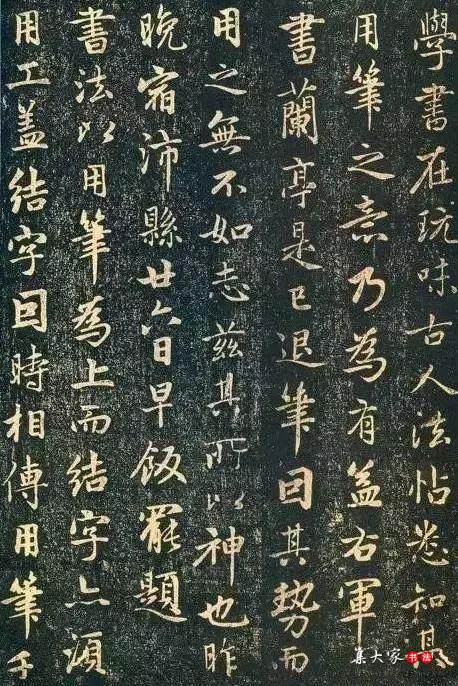 學書在玩味古人法帖悉知其
用筆之意乃為有益右軍
書蘭亭是已退筆因其勢而
用之無不如志茲其所以神也昨
晚宿沛縣廿六日早飯罷題
書法以用筆為上而結字亦須
用工盖結字因時相傳用筆千
集大家书法